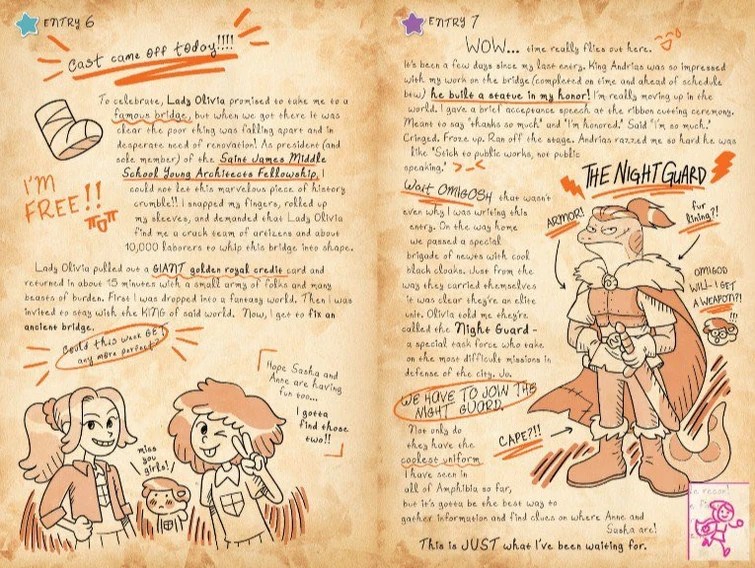 ENTRY 6
Cast came off today!!!!
To celebrate, Lady Olivia promised to take me to a
famous bridge, but when we got there it was
clear the poor thing was falling apart and in
desperate need of renovation! As president (and
sole member) of the Saint James Middle
School Young Architects Fellowship, I
could not let this marvelous piece of history
crumble!! I snapped my fingers, rolled up
my sleeves, and demanded that Lady Olivia
find me a crack team of artizens and about
10,000 laborers to whip this bridge into shape.
I'M
FREE!!
Lady Olivia pulled out a GIANT golden royal credit card and
returned in about 15 minutes with a small army of folks and many
beasts of burden. First I was dropped into a fantasy world. Then I was
invited to stay with the KING of said world. Now, I get to fix an
ancient bridge.
Could this week get
any more perfect?
Hope Sasha and
Anne are having
fun too...
I gotta
find those
two!!
miss
you
girls!
ENTRY 7
WOW... time really flies out here.
It's been a few days since my last entry. King Andrias was so impressed
with my work on the bridge (completed on time and ahead of schedule
btw) he built a statue in my honor! I'm really moving up in the
world. I gave a brief acceptance speech at the ribbon cutting ceremony.
Meant to say "thanks so much" and "I'm honored." Said "I'm so much."
Cringed. Froze up. Ran off the stage. Andrias razzed me so hard he was
like "Stick to public works, not public
speaking." >_<
Wait OMIGOSH that wasn't
even why I was writing this
entry. On the way home
we passed a special
brigade of newts with cool
black cloaks. Just from the
way they carried themselves
it was clear they're an elite
unit. Olivia told me they're
called the Night Guard -
a special task force who take
on the most difficult missions in
defense of the city. So,
WE HAVE TO JOIN THE
NIGHT GUARD.
Not only do
they have the
coolest uniform
I have seen in
all of Amphibia so far,
but it's gotta be the best way to
gather information and find clues on where Anne and
Sasha are!
This is JUST what I've been waiting for.
THE NIGHT GUARD
ARMOR!
fur
lining?!
OMIGOD
WILL I GET
A WEAPON?!
!!!
CAPE?!!